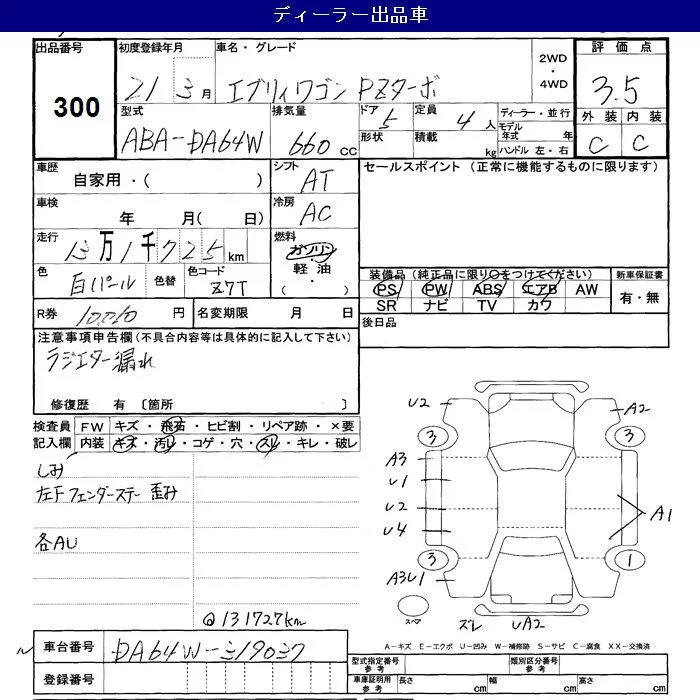 ディーラー出品車
出品番号 300
初度登録年月 21 3月
車名・グレード エブリィワゴン PZターボ
2WD・4WD
評価点 3.5
型式 ABA-DA64W
排気量 660cc
ドア 5 形状
定員 4人 積載 kg
ディーラー・並行
モデル年式 年
ハンドル 左・右
外装 内装
C C
車歴 自家用・( )
シフト AT
セールスポイント(正常に機能するものに限ります)
車検 年 月( 日)
冷房 AC
走行 13万1千725km
燃料 ガソリン・軽油・( )
色 白パール 色替 色コード Z7T
装備品(純正品に限り○をつけてください) 新車保証書
PS PW ABS エアB AW 有・無
SR ナビ TV カワ
R券 10,010円 名変期限 月 日
後日品
注意事項申告欄(不具合内容等は具体的に記入して下さい)
ラジエター漏れ
修復歴 有〔箇所 〕
検査員 FW キズ・飛石・ヒビ割・リペア跡・×要
記入欄 内装 キズ・汚レ・コゲ・穴・スレ・キレ・破レ
しみ
左Fフェンダーステー歪み
各AU
@131727km
U2 A2
3 3
A3
U1
U2 A1
U4
3 1
A3U1
スペア ズレ UA2
A-キズ E-エクボ U-凹み W-補修跡 S-サビ C-腐食 XX-交換済
車台番号 DA64W-319037
登録番号
型式指定番号 参考 類別区分番号 参考
車庫証明用 参考 長さ cm 幅 cm 高さ cm